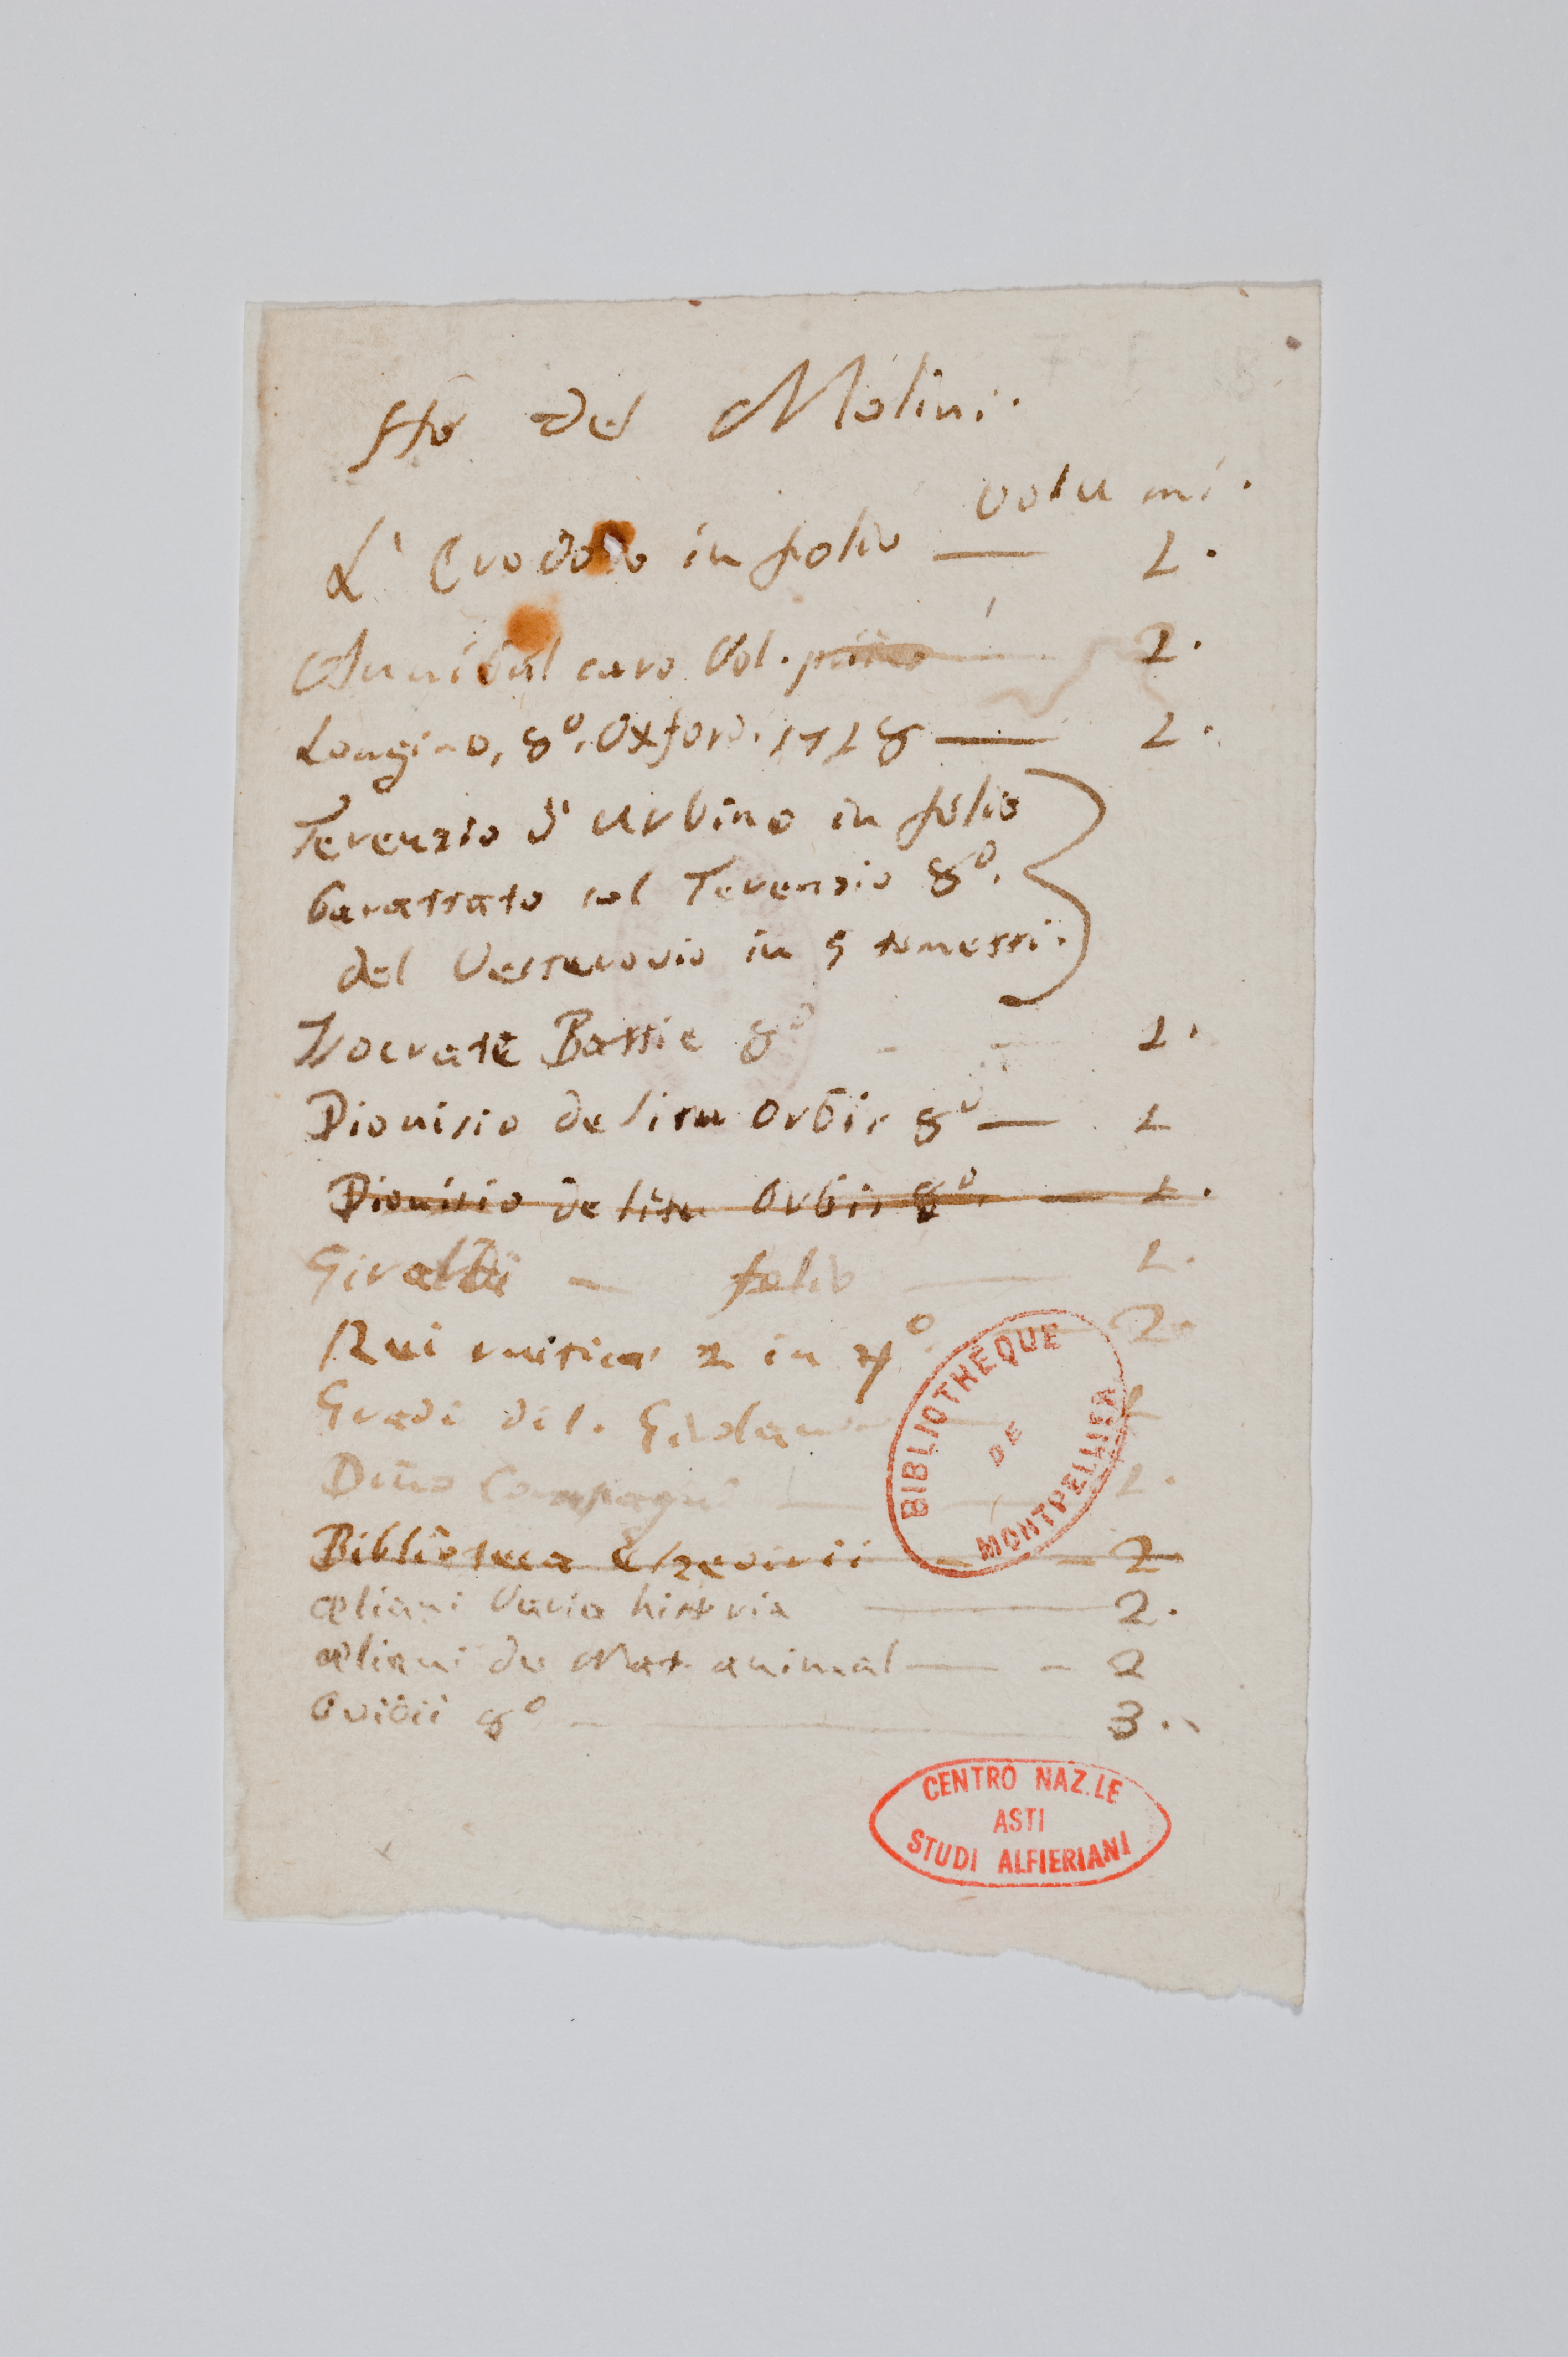 Ho del Molini.
volumi.
L'Erodoto in folio — 1.
Annibal caro Vol. primo — 2.
Longino, 8º. Oxford. 1718 — 1.
Terenzio d'Urbino in folio
barattato col Terenzio 8º.
del Vesterovio in 5 tometti.
Isocrate Battie 8º — 1.
Dionisio de situ Orbis 8º — 1
Dionisio de situ Orbis 8º. — 1.
Giraldi — folio — 1.
Rei rustica 2 in 4º. — 2.
Gradi di S. Girolamo — 1
Dino Compagni — 1.
Biblioteca Elzevirii — 2
Æliani Varia historia — 2.
Æliani de Nat. animal — 2
Ovidii 8º — 3.
BIBLIOTHEQUE
DE
MONTPELLIER
CENTRO NAZ.LE
ASTI
STUDI ALFIERIANI